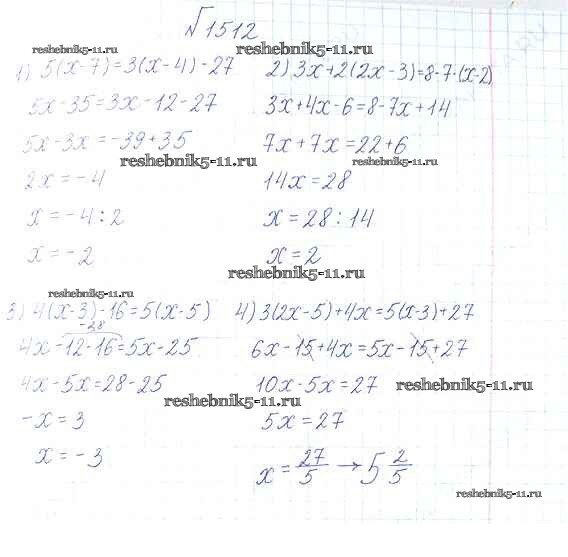 №1512
reshebnik5-11.ru
reshebnik5-11.ru
1) 5(x-7)=3(x-4)-27
5x-35=3x-12-27
5x-3x=-39+35
reshebnik5-11.ru
2x=-4
x=-4:2
x=-2
2) 3x+2(2x-3)=8-7·(x-2)
3x+4x-6=8-7x+14
7x+7x=22+6
reshebnik5-11.ru
14x=28
x=28:14
x=2
reshebnik5-11.ru
reshebnik5-11.ru
3) 4(x-3)-16=5(x-5)
-28
4x-12-16=5x-25
4x-5x=28-25
reshebnik5-11.ru
-x=3
x=-3
4) 3(2x-5)+4x=5(x-3)+27
6x-15+4x=5x-15+27
10x-5x=27
reshebnik5-11.ru
5x=27
x=27/5→5 2/5
reshebnik5-11.ru